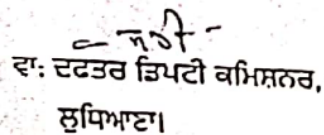 - ਸਹੀ -
ਵਾ: ਦਫਤਰ ਡਿਪਟੀ ਕਮਿਸ਼ਨਰ,
ਲੁਧਿਆਣਾ।